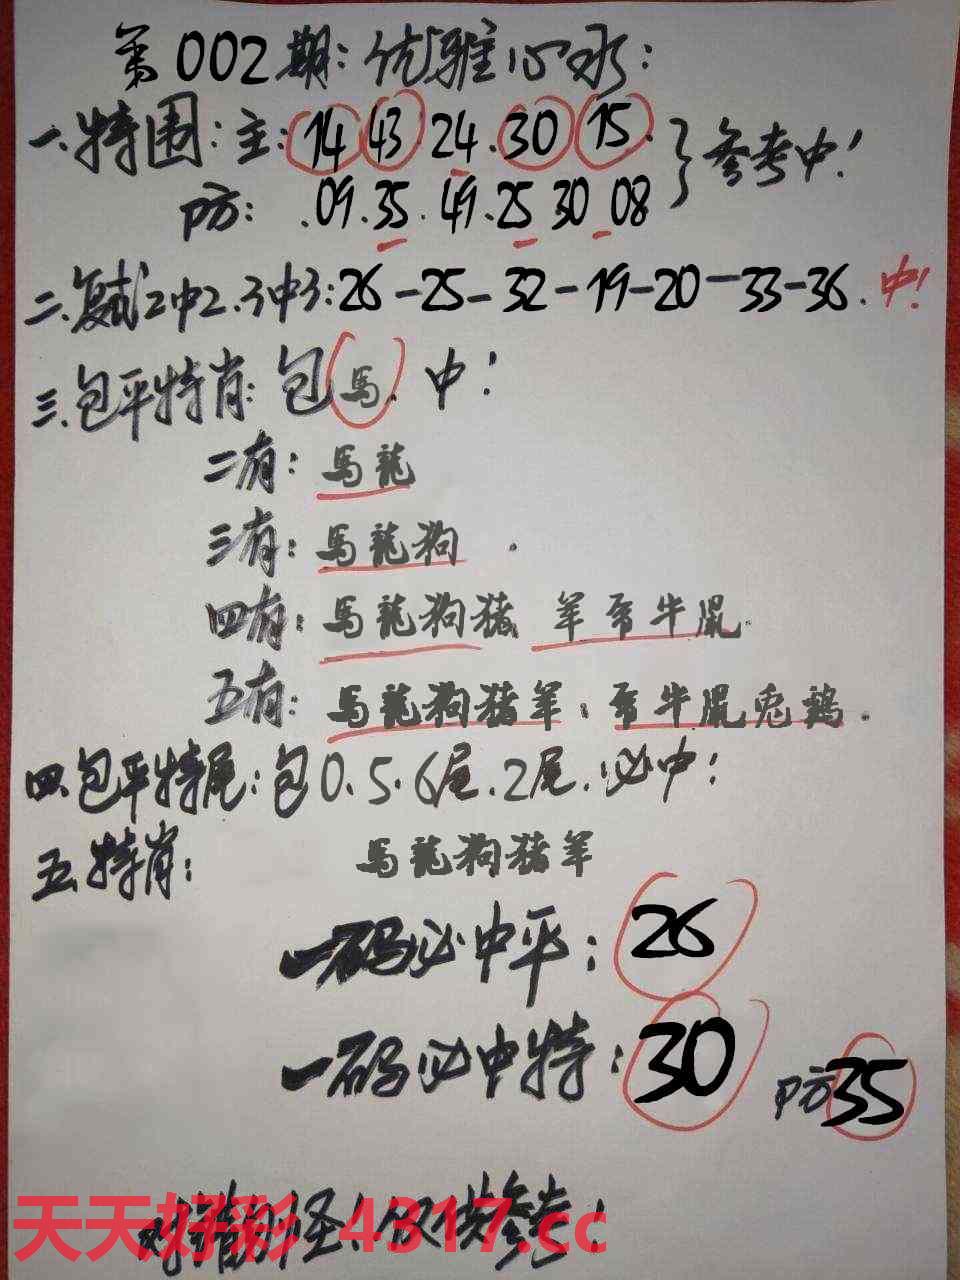 第002期:优雅心水:
一.特围:主:14 43.24.30 15.}参考中!
防:.09.35.49.25 30 08
二.复试2中2.3中3:26-25-32-19-20-33-36.中!
三.包平特肖:包馬.中!
二有:馬龍
三有:馬龍狗.
四有:馬龍狗猪 羊 牛鼠.
五有:馬龍狗猪羊: 牛鼠兎鷄.
四.包平特尾:包0.5.6尾.2尾.必中!
五.特肖:馬龍狗猪羊
一码必中平:26
一码必中特:30 防35
对错勿怪!仅供参考!
天天好彩 4317.cc